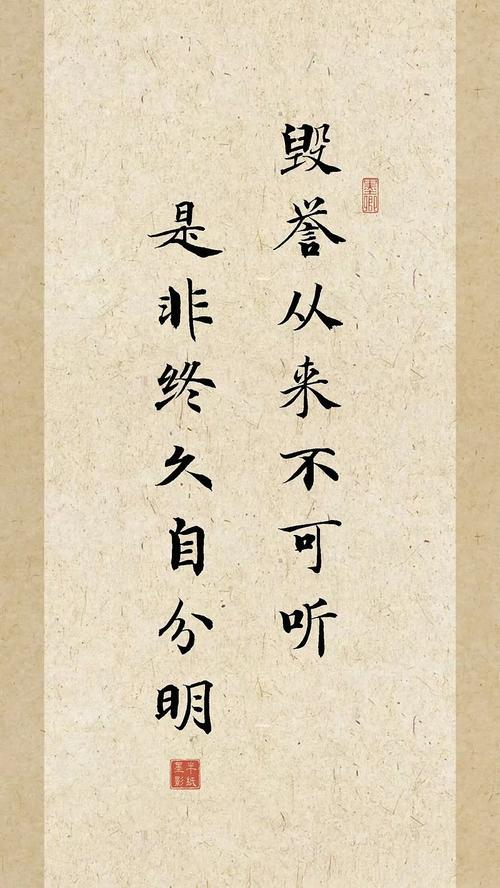 毁誉从来不可听
是非终久自分明
墨卿
半纸墨影